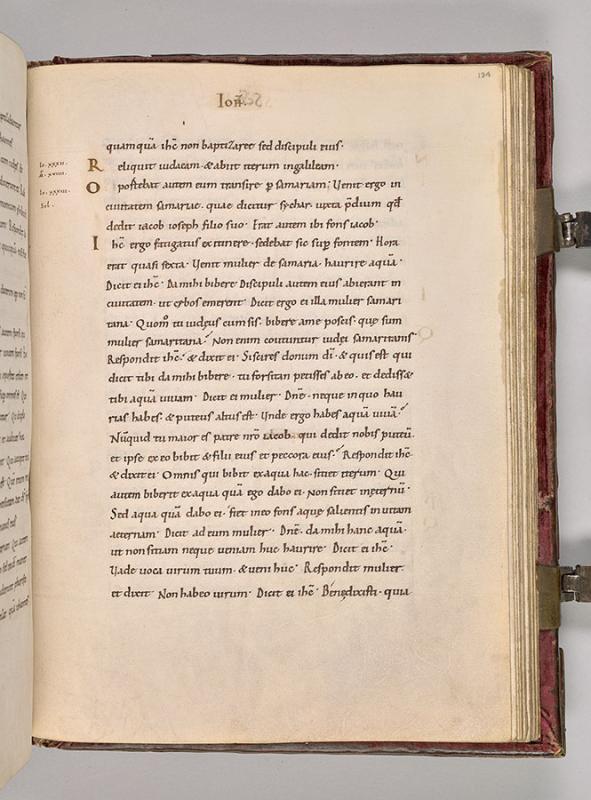 194
Ioħ.
quamquā ihc̄ non baptizaret sed discipuli eius.
Io. xxxii.
Reliquit iudaeam. & abiit iterum in galileam.
Io. xxxiii.
Oportebat autem eum transire p samariam; Uenit ergo in
Sol.
ciuitatem samariae. quae dicitur sychar. iuxta p̄dium qđ
dedit iacob ioseph filio suo. Erat autem ibi fons iacob.
Ihc̄ ergo fatigatus ex itinere. sedebat sic sup fontem. Hora
erat quasi sexta. Uenit mulier de samaria. haurire aquā.
Dicit ei ihc̄. Da mihi bibere. Discipuli autem eius abierant in
ciuitatem. ut cybos emerent. Dicit ergo ei illa mulier samari
tana. Quom̄ tu iudęus cum sis. bibere a me poscis. quę sum
mulier samaritana? Non enim coutuntur iudęi samaritanis.
Respondit ihc̄. & dixit ei. Si scires donum dī. & quis est qui
dicit tibi da mihi bibere. tu forsitan petisses ab eo. et dedisset
tibi aquā uiuam. Dicit ei mulier. Dnē. neque in quo hau
rias habes. & puteus altus est. Unde ergo habes aquā uiuā?
Nūquid tu maior es patre nr̄o iacob. qui dedit nobis puteū.
et ipse ex eo bibit & filii eius et peccora eius? Respondit ihc̄
& dixit ei. Omnis qui bibit ex aqua hac. sitiet iterum. Qui
autem biberit ex aqua quā ego dabo ei. non sitiet in eternū.
Sed aqua quā dabo ei. fiet in eo fons aquę salientis in uitam
aeternam. Dicit ad eum mulier. Dnē. da mihi hanc aquā.
ut non sitiam neque ueniam huc haurire. Dicit ei ihc̄.
Uade uoca uirum tuum. & ueni huc. Respondit mulier.
et dixit. Non habeo uirum. Dicit ei ihc̄. Bene dixisti. quia